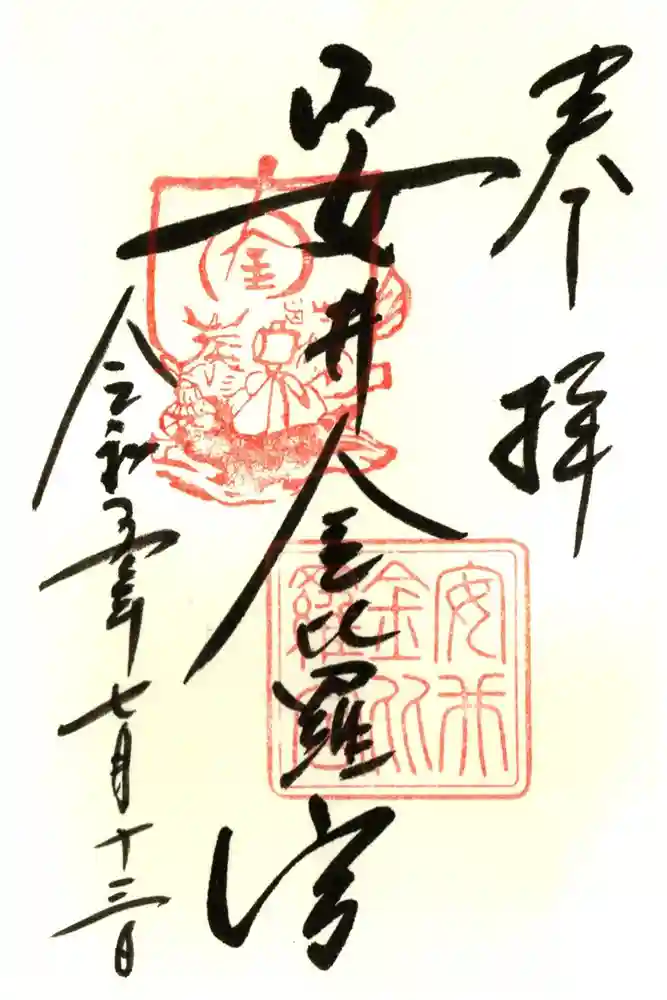 奉拝
安井金比羅宮
令和五年七月十三日
安井
金比
羅宮
金